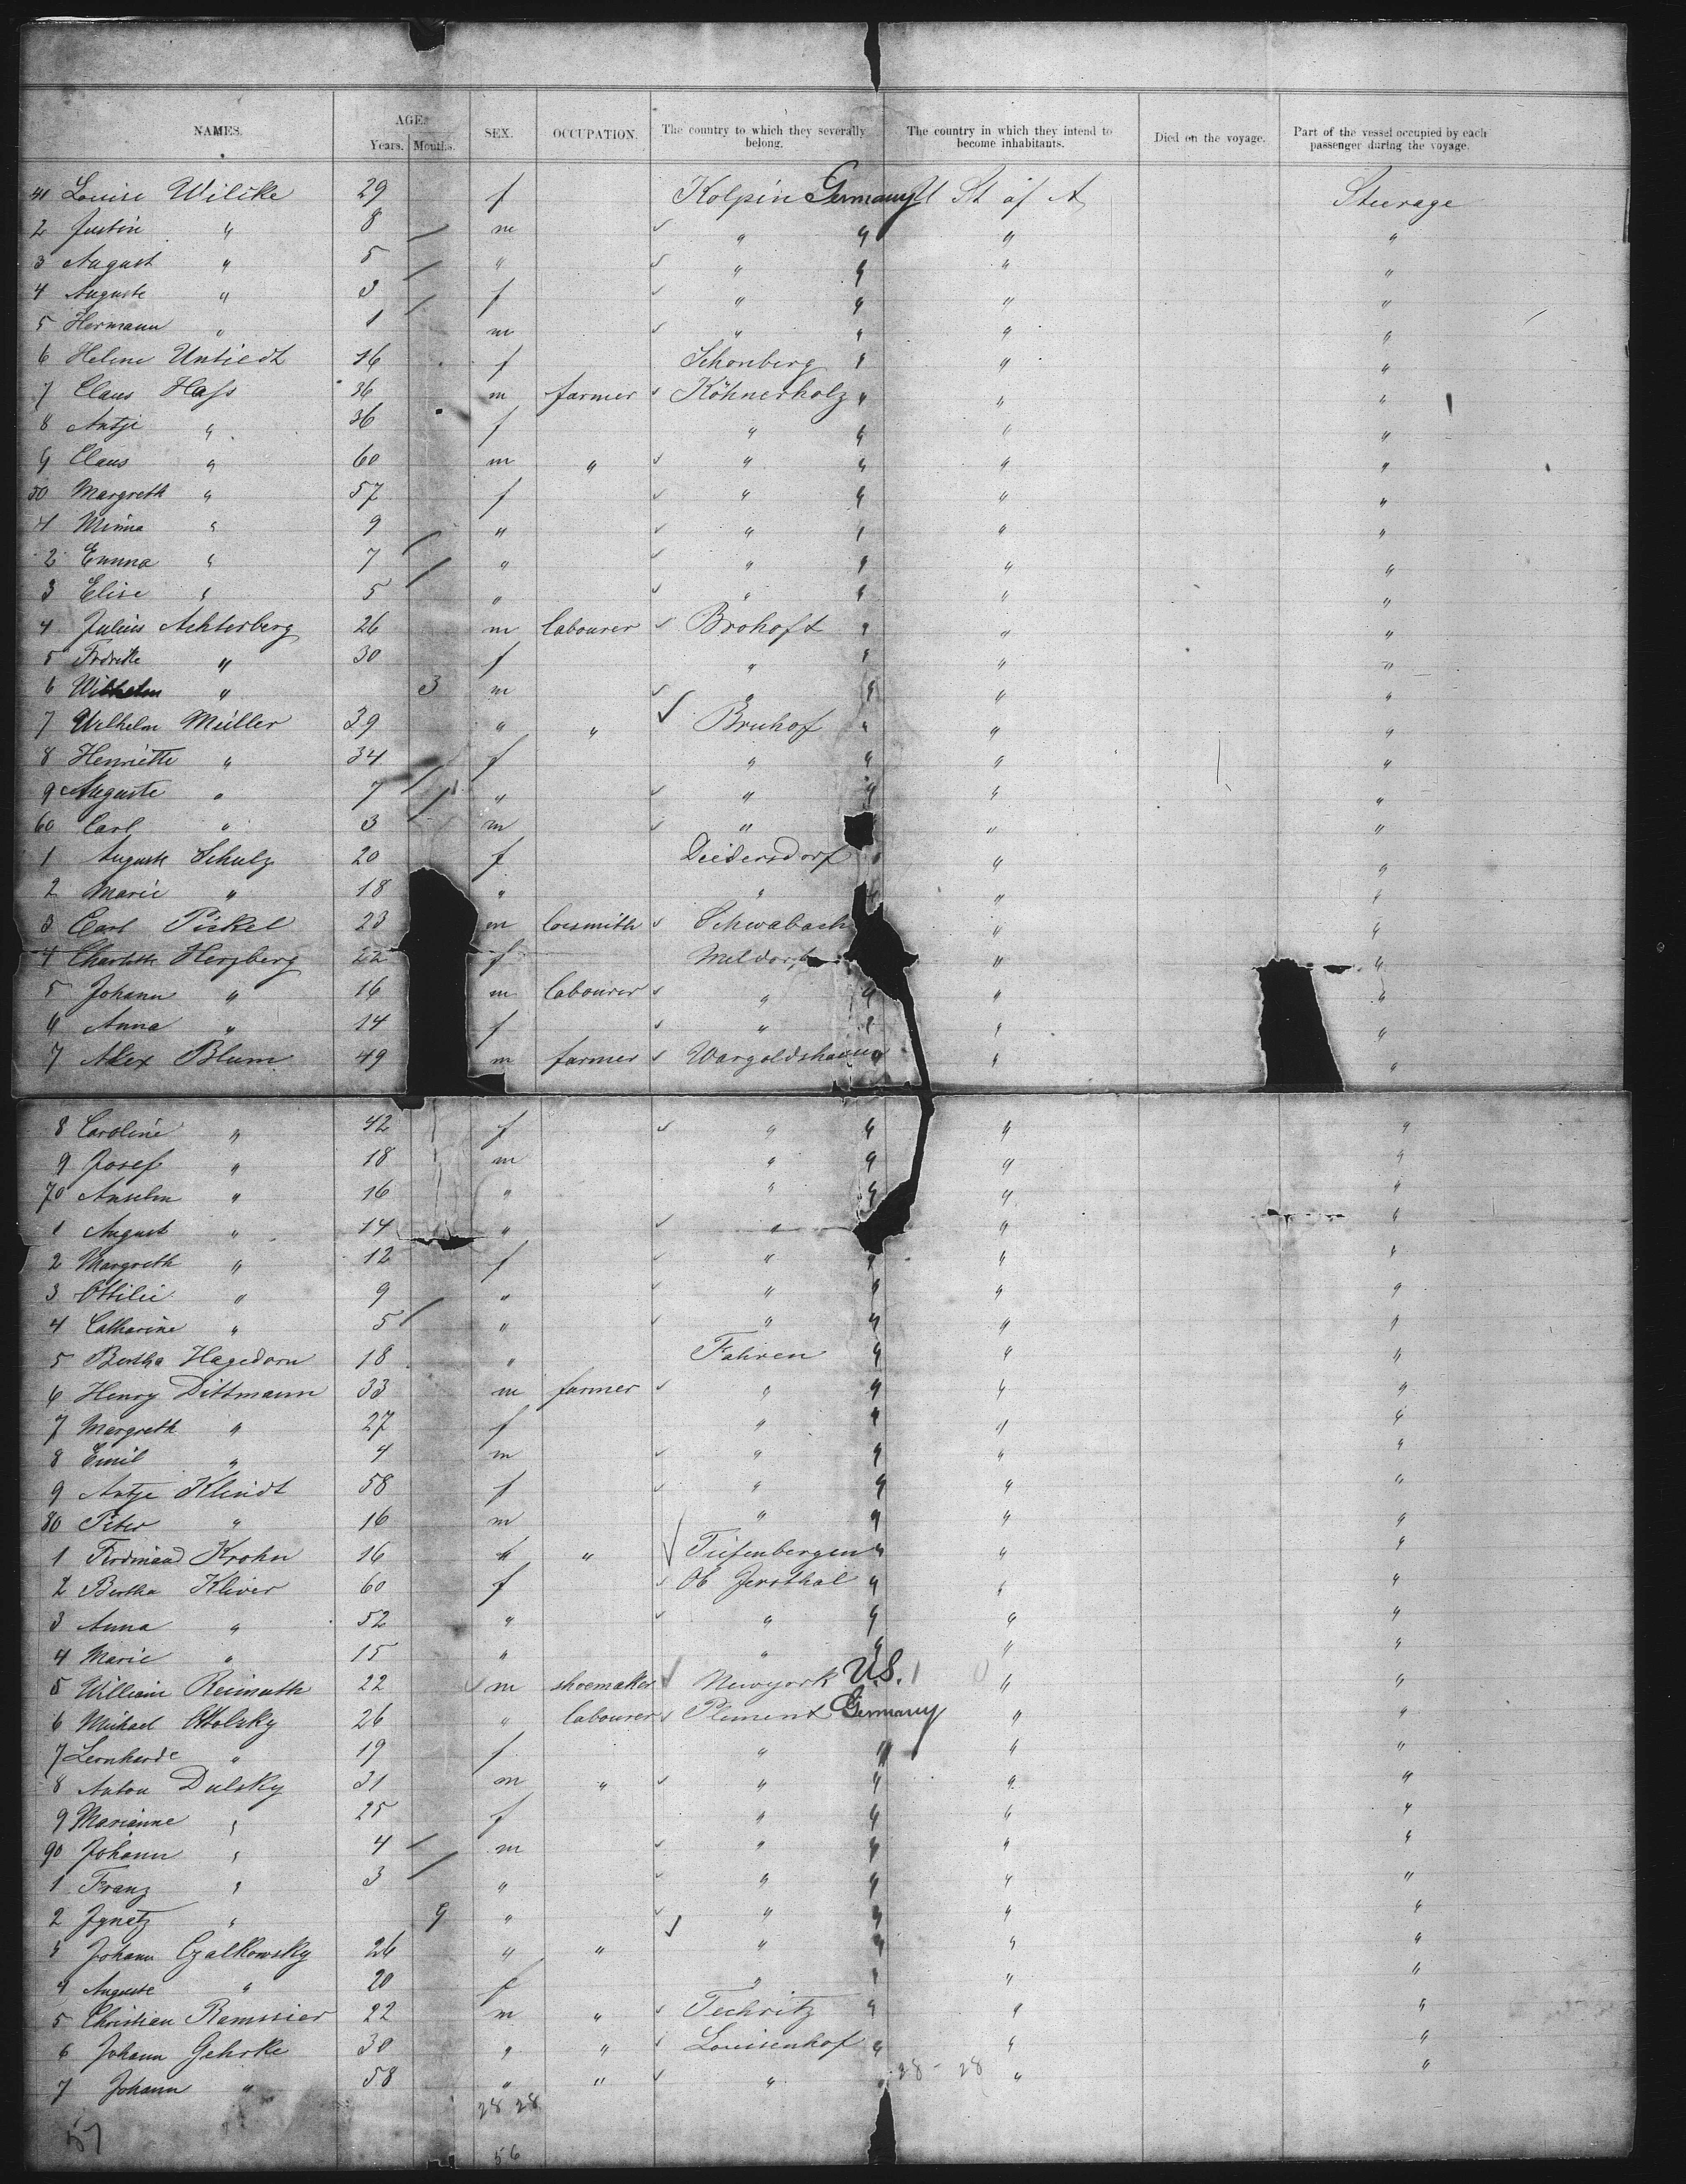 NAMES. AGE. Years. Months. SEX. OCCUPATION. The country to which they severally belong. The country in which they intend to become inhabitants. Died on the voyage. Part of the vessel occupied by each passenger during the voyage.
41 Louise Wilcke 29 f Kolpin Germany U St of A Steerage
2 Justin " 8 m " " " "
3 August " 5 " " " " "
4 Auguste " 3 f " " " "
5 Hermann " 1 m " " " "
6 Helene Untiedt 16 f Schonberg " " "
7 Claus Hass 36 m farmer Köhnerholz " " "
8 Antje " 36 f " " " "
9 Claus " 60 m " " " " "
50 Margreth " 57 f " " " "
1 Minna " 9 " " " " "
2 Emma " 7 " " " " "
3 Elise " 5 " " " " "
4 Julius Achterberg 26 m labourer Brohoft " " "
5 Fridrike " 30 f " " " "
6 Wilhelm " 3 m " " " "
7 Wilhelm Müller 39 " " Bruhof " " "
8 Henriette " 34 f " " " "
9 Auguste " 7 " " " " "
60 Carl " 3 m " " "
1 Auguste Schulz 20 f Deidersdorf " " "
2 Marie " 18 " " " " "
3 Carl Pickel 23 m locsmith Schwabach " "
4 Charlotte Herzberg 22 f Meldorf " "
5 Johann " 16 m labourer " " " "
6 Anna " 14 f " " " "
7 Alex Blum 49 m farmer Wargoldshausen " " "
8 Caroline " 42 f " " " "
9 Josef " 18 m " " " "
70 Anselm " 16 " " " " "
1 August " 14 " " " "
2 Margreth " 12 f " " " "
3 Ottilie " 9 " " " " "
4 Catharine " 5 " " " " "
5 Bertha Hagedorn 18 " Fahren " " "
6 Henry Dittmann 33 m farmer " " " "
7 Margreth " 27 f " " " "
8 Emil " 4 m " " " "
9 Antje Klindt 58 f " " " "
80 Peter " 16 m " " " "
1 Ferdinand Krohn 16 " " Tiefenbergen " " "
2 Bertha Kliver 60 f Ob Jersthal " " "
3 Anna " 52 " " " " "
4 Marie " 15 " " " " "
5 William Reimuth 22 m shoemaker Newyork U.S. " "
6 Michael Ottolsky 26 " labourer Plement Germany " "
7 Lernharde " 19 f " " " "
8 Anton Dulsky 31 m " " " " "
9 Marianne " 25 f " " " "
90 Johann " 4 m " " " "
1 Franz " 3 " " " " "
2 Ignatz " 9 " " " " "
3 Johann Czalkowsky 26 " " " " " "
4 Auguste " 20 f " " " "
5 Christian Ramssier 22 m " Techritz " " "
6 Johann Gehrke 30 " " Louisenhof " " "
7 Johann " 58 " " " " 28 - 28 " "
28 28
57
56